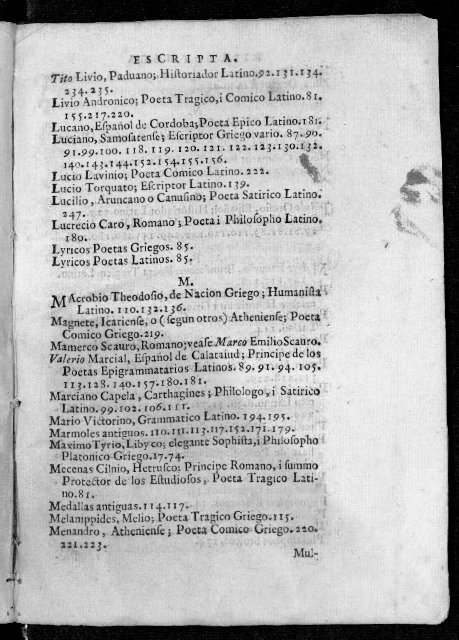 ESCRIPTA.
Tito Livio, Paduano; Historiador Latino. 92. 131. 134.
234. 235.
Livio Andronico; Poeta Tragico, i Comico Latino. 81.
155. 217. 220.
Lucano, Español de Cordoba; Poeta Epico Latino. 181.
Luciano, Samosatense; Escriptor Griego vario. 87. 90.
91. 99. 100. 118. 119. 120. 121. 122. 123. 130. 132.
140. 143. 144. 152. 154. 155. 156.
Lucio Lavinio; Poeta Comico Latino. 222.
Lucio Torquato; Escriptor Latino. 139.
Lucilio, Aruncano o Canusino; Poeta Satirico Latino.
247.
Lucrecio Caro, Romano; Poeta i Philosopho Latino.
180.
Lyricos Poetas Griegos. 85.
Lyricos Poetas Latinos. 85.
M.
MAcrobio Theodosio, de Nacion Griego; Humanista
Latino. 110. 132. 136.
Magnete, Icariense, o (segun otros) Atheniense; Poeta
Comico Griego. 219.
Mamerco Scauro, Romano; vease Marco Emilio Scauro.
Valerio Marcial, Español de Calataiud; Principe de los
Poetas Epigrammatarios Latinos. 89. 91. 94. 105.
113. 128. 140. 157. 180. 181.
Marciano Capela, Carthagines; Philologo, i Satirico
Latino. 99. 102. 106. 111.
Mario Victorino, Grammatico Latino. 194. 195.
Marmoles antiguos. 110. 111. 113. 117. 152. 171. 179.
Maximo Tyrio, Libyco; elegante Sophista, i Philosopho
Platonico Griego. 17. 74.
Mecenas Cilnio, Hetrusco; Principe Romano, i summo
Protector de los Estudiosos; Poeta Tragico Lati-
no. 81.
Medallas antiguas. 114. 117.
Melanippides, Melio; Poeta Tragico Griego. 115.
Menandro, Atheniense; Poeta Comico Griego. 220.
221. 223.
Mul-